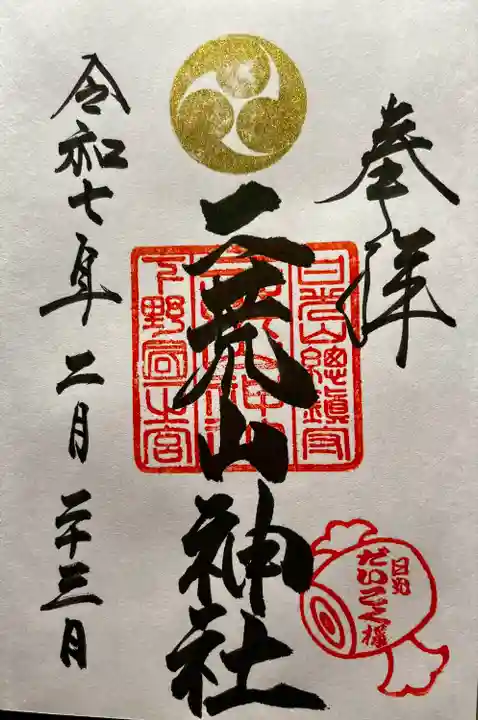 奉拝
日光山總鎮守
二荒山神社
下野國一之宮
令和七年二月二十三日
日光
だいこく様